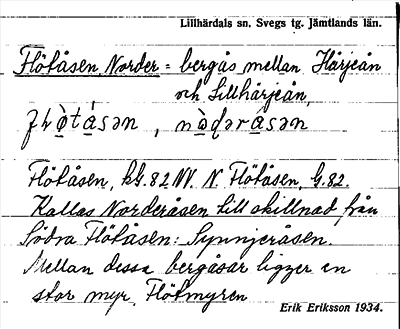 Lillhärdals sn, Svegs tg. Jämtlands län.
Flötåsen, Norder = bergås mellan Härjeån
och Lillhärjeån,
Flötåsen, kG. 82 NV. N. Flötåsen, G. 82.
Kallas Norderåsen till skillnad från
Södra Flötåsen: Synnjeråsen.
Mellan dessa bergåsar ligger en
stor myr, Flötmyren
Erik Eriksson 1934.